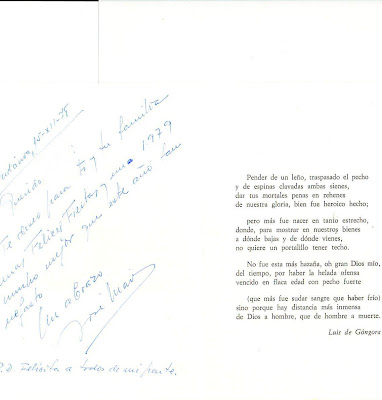 15-XII-78
Querido
Te deseo para ti y tu familia
unas Felices Fiestas y un 1979
mucho mejor que este año tan
nefasto
Un abrazo
José María
P.D. Felicita a todos de mi parte.
Pender de un leño, traspasado el pecho
y de espinas clavadas ambas sienes,
dar tus mortales penas en rehenes
de nuestra gloria, bien fue heroico hecho;
pero más fue nacer en tanto estrecho,
donde, para mostrar en nuestros bienes
a dónde bajas y de dónde vienes,
no quiere un portalillo tener techo.
No fue esta más hazaña, oh gran Dios mío,
del tiempo, por haber la helada ofensa
vencido en flaca edad con pecho fuerte
(que más fue sudar sangre que haber frío)
sino porque hay distancia más inmensa
de Dios a hombre, que de hombre a muerte.
Luis de Góngora